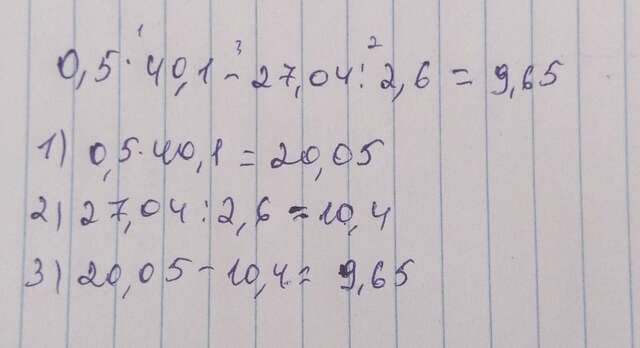 0,5 · 40,1 - 27,04 : 2,6 = 9,65
1) 0,5 · 40,1 = 20,05
2) 27,04 : 2,6 = 10,4
3) 20,05 - 10,4 = 9,65